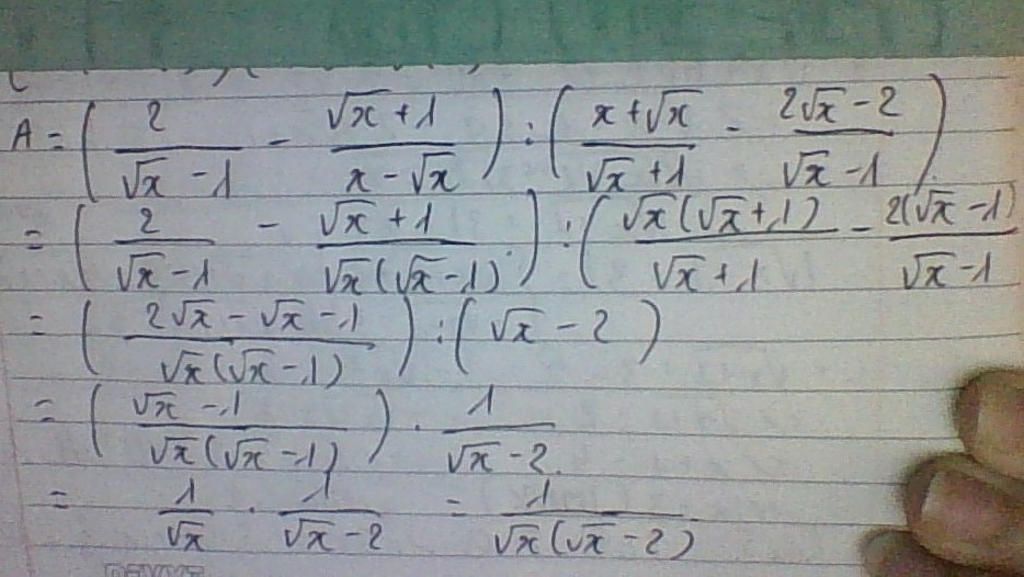 A = ( 2/(√x - 1) - (√x + 1)/(x - √x) ) : ( (x + √x)/(√x + 1) - (2√x - 2)/(√x - 1) )
= ( 2/(√x - 1) - (√x + 1)/(√x(√x - 1)) ) : ( √x(√x + 1)/(√x + 1) - 2(√x - 1)/(√x - 1)
= ( (2√x - √x - 1)/(√x(√x - 1)) ) : ( √x - 2 )
= ( (√x - 1)/(√x(√x - 1)) ) . 1/(√x - 2)
= 1/√x . 1/(√x - 2) = 1/(√x(√x - 2))